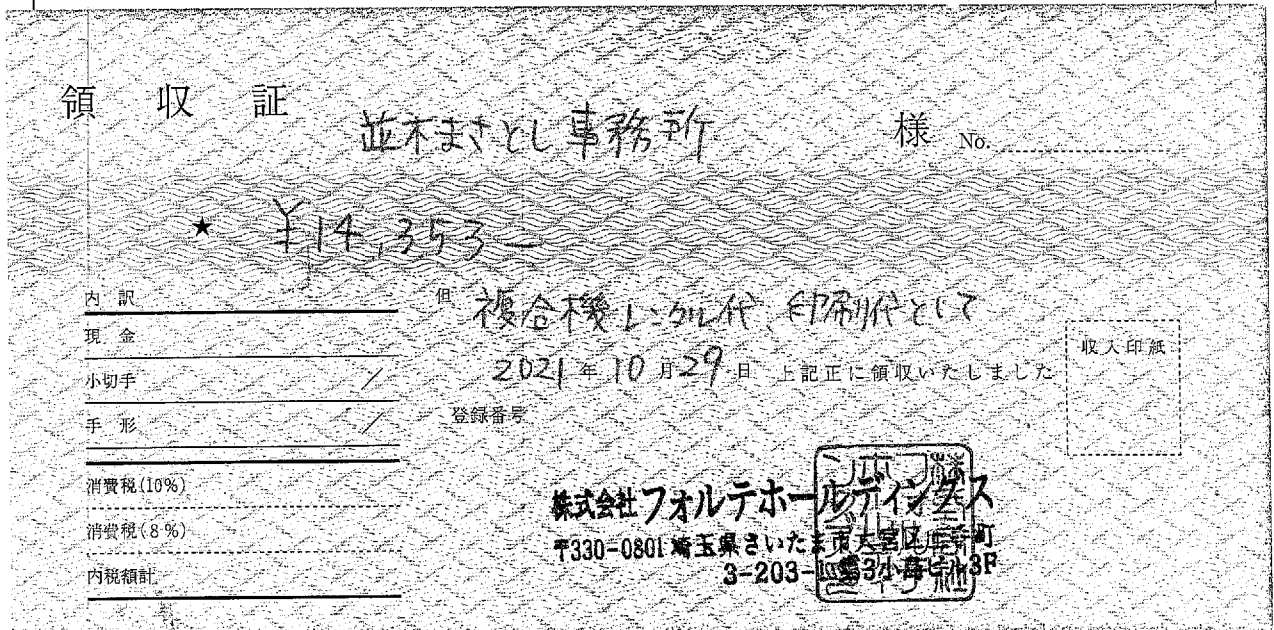 領収証
並木まさとし事務所 様 No.
★ ¥14,353-
内訳
現金
小切手 /
手形 /
消費税(10%)
消費税(8%)
内税額計
但 複合機レンタル代、印刷代として
2021年10月29日 上記正に領収いたしました
登録番号
収入印紙
株式会社フォルテホールディングス
〒330-0801 埼玉県さいたま市大宮区土手町
3-203-1 第3小島ビル3F